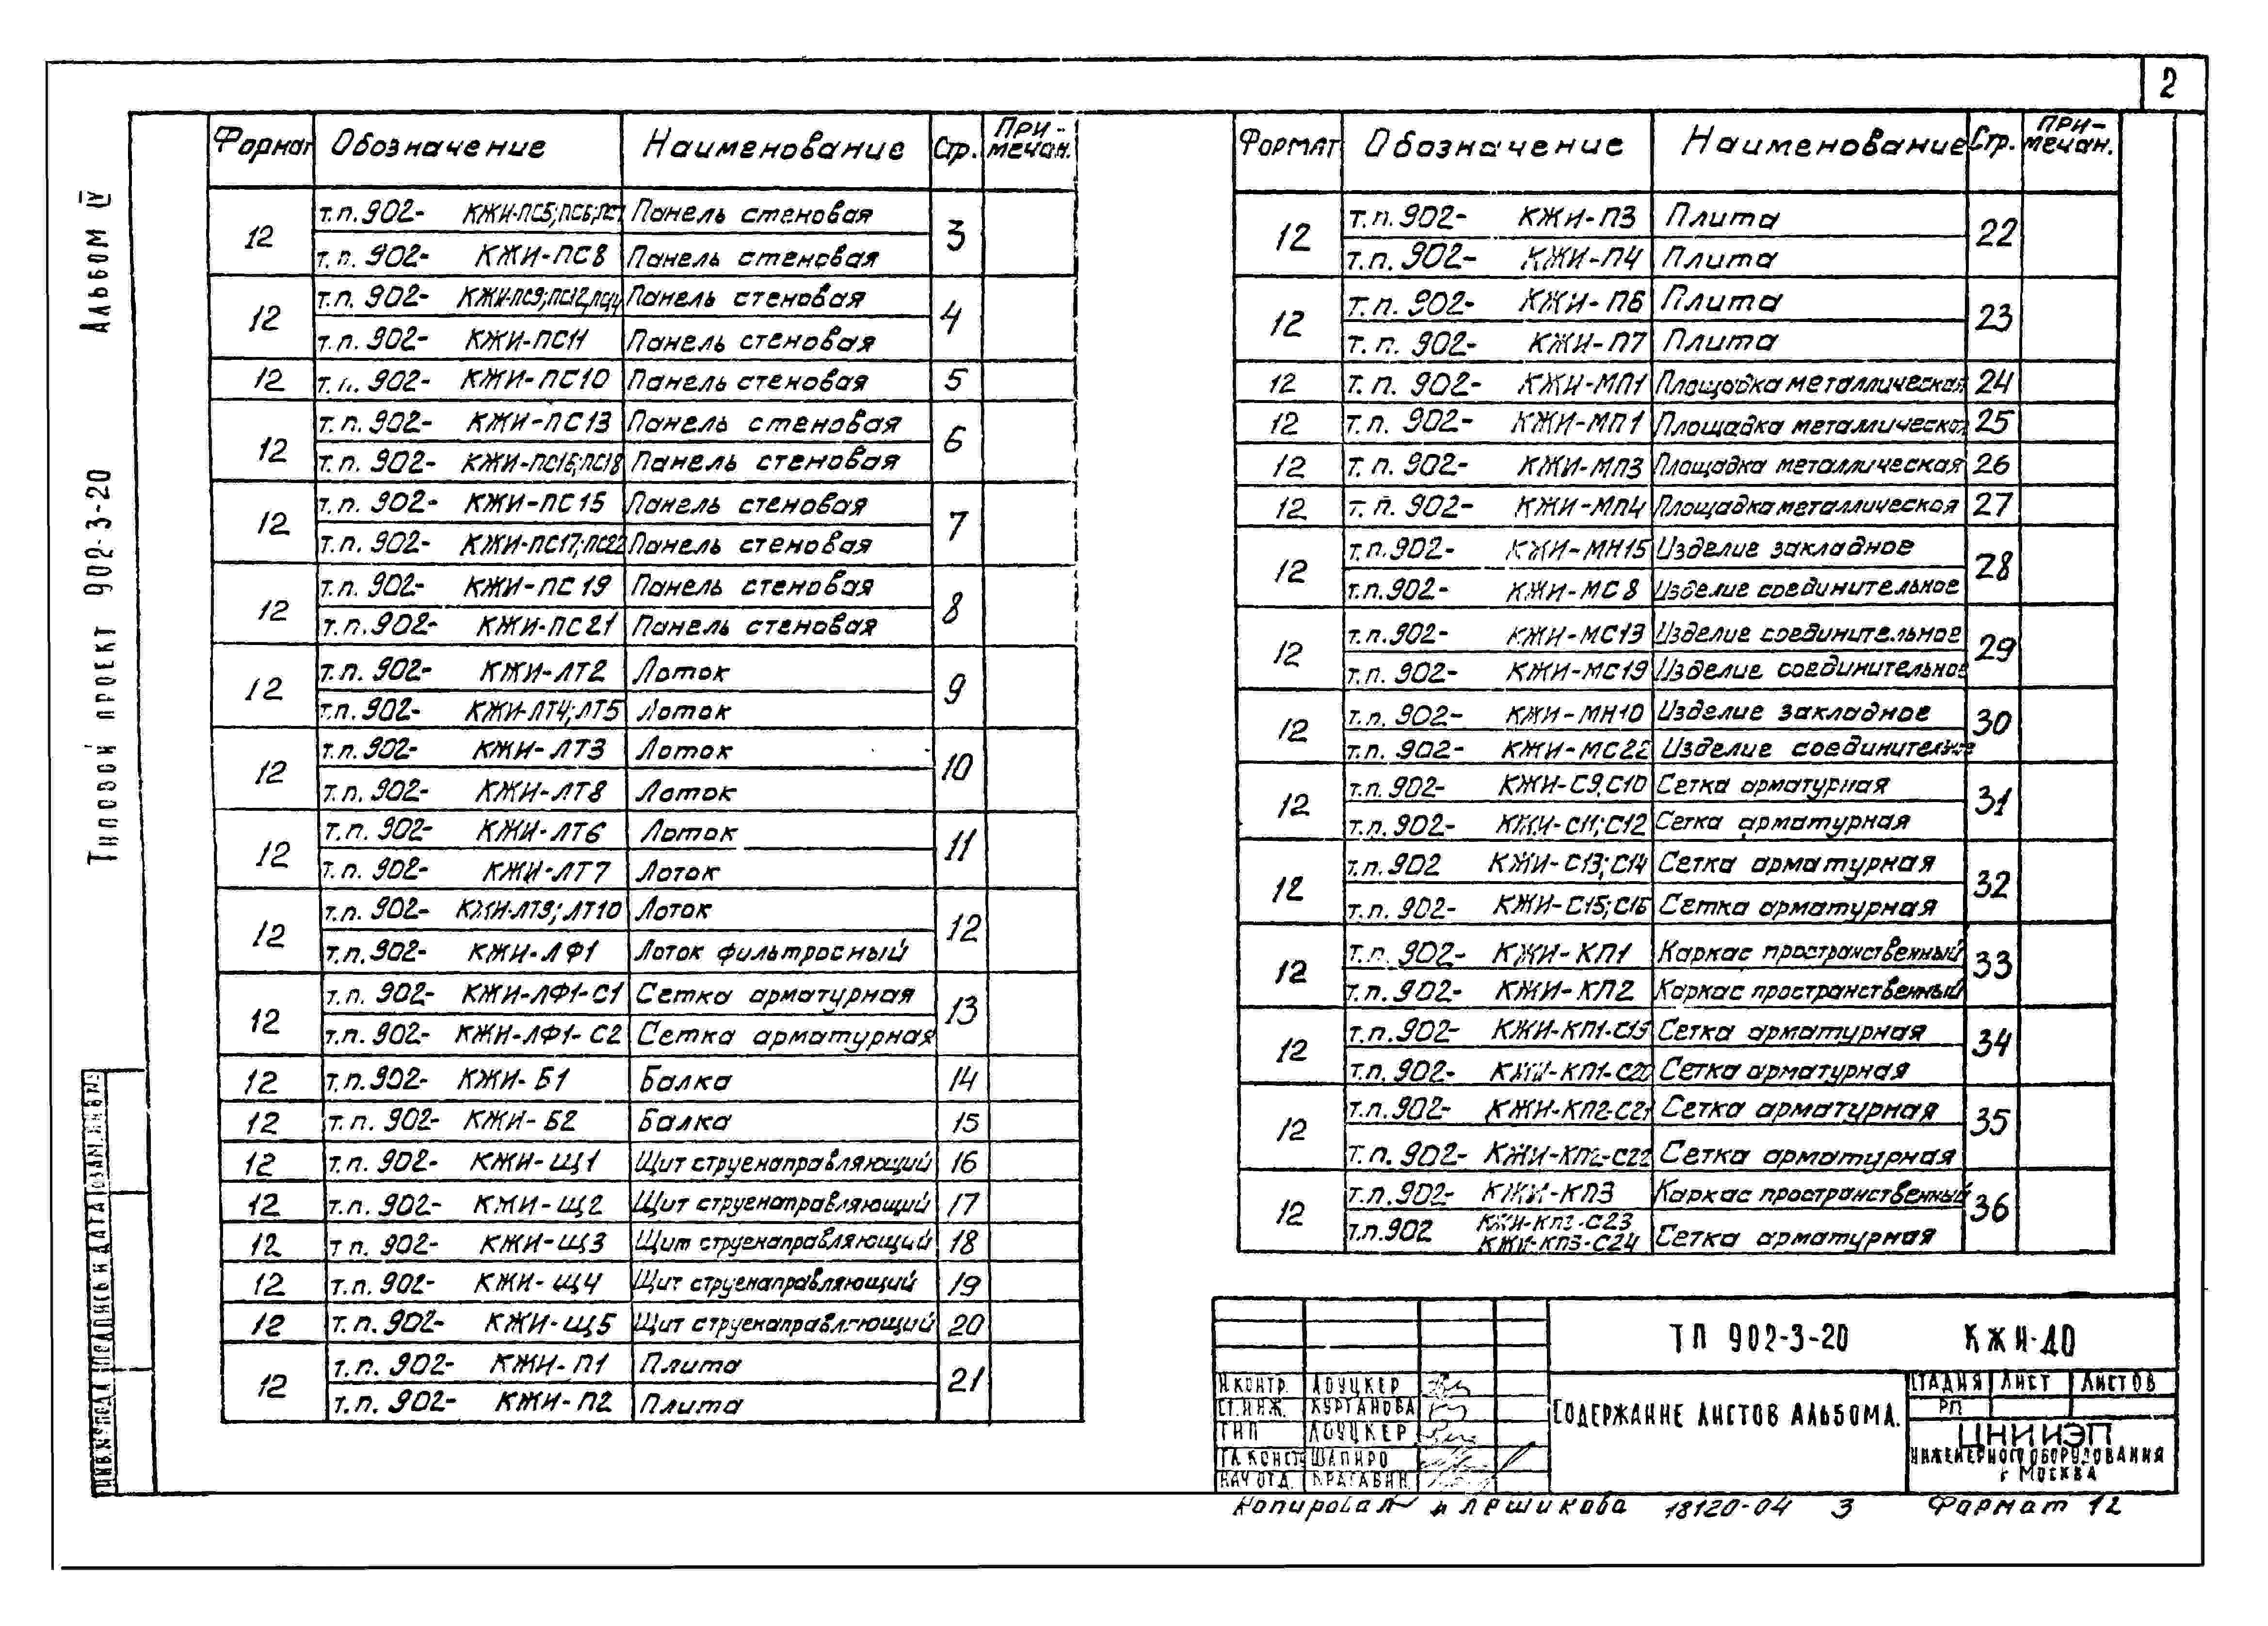 2
Альбом IV
Типовой проект 902-3-20
Формат Обозначение Наименование Стр. При-мечан.
12 т.п.902- КЖИ-ПС5;ПС6;ПС7 Панель стеновая 3
т.п. 902- КЖИ-ПС8 Панель стеновая
12 т.п. 902- КЖИ-ПС9;ПС12,ПС14 Панель стеновая 4
т.п. 902- КЖИ-ПС11 Панель стеновая
12 т.п. 902- КЖИ-ПС10 Панель стеновая 5
12 т.п. 902- КЖИ-ПС13 Панель стеновая 6
т.п. 902- КЖИ-ПС16;ПС18 Панель стеновая
12 т.п. 902- КЖИ-ПС15 Панель стеновая 7
т.п. 902- КЖИ-ПС17;ПС22 Панель стеновая
12 т.п. 902- КЖИ-ПС19 Панель стеновая 8
т.п.902- КЖИ-ПС21 Панель стеновая
12 т.п. 902- КЖИ-ЛТ2 Лоток 9
т.п. 902- КЖИ-ЛТ4;ЛТ5 Лоток
12 т.п. 902- КЖИ-ЛТ3 Лоток 10
т.п. 902- КЖИ-ЛТ8 Лоток
12 т.п. 902- КЖИ-ЛТ6 Лоток 11
т.п. 902- КЖИ-ЛТ7 Лоток
12 т.п. 902- КЖИ-ЛТ9; ЛТ10 Лоток 12
т.п.902- КЖИ-ЛФ1 Лоток фильтросный
12 т.п. 902- КЖИ-ЛФ1-С1 Сетка арматурная 13
т.п. 902- КЖИ-ЛФ1-С2 Сетка арматурная
12 т.п.902- КЖИ-Б1 Балка 14
12 т.п. 902- КЖИ-Б2 Балка 15
12 т.п. 902- КЖИ-Щ1 Щит струенаправляющий 16
12 т.п. 902- КЖИ-Щ2 Щит струенаправляющий 17
12 т.п. 902- КЖИ-Щ3 Щит струенаправляющий 18
12 т.п. 902- КЖИ-Щ4 Щит струенаправляющий 19
12 т.п. 902- КЖИ-Щ5 Щит струенаправляющий 20
12 т.п. 902- КЖИ-П1 Плита 21
т.п. 902- КЖИ-П2 Плита
Формат Обозначение Наименование Стр. При-мечан.
12 т.п. 902- КЖИ-П3 Плита 22
т.п. 902- КЖИ-П4 Плита
12 т.п. 902- КЖИ-П6 Плита 23
т.п. 902- КЖИ-П7 Плита
12 т.п. 902- КЖИ-МП1 Площадка металлическая 24
12 т.п. 902- КЖИ-МП1 Площадка металлическая 25
12 т.п. 902- КЖИ-МП3 Площадка металлическая 26
12 т.п. 902- КЖИ-МП4 Площадка металлическая 27
12 т.п.902- КЖИ-МН15 Изделие закладное 28
т.п.902- КЖИ-МС8 Изделие соединительное
12 т.п.902- КЖИ-МС13 Изделие соединительное 29
т.п. 902- КЖИ-МС19 Изделие соединительное
12 т.п. 902- КЖИ-МН10 Изделие закладное 30
т.п. 902- КЖИ-МС22 Изделие соединительное
12 т.п.902- КЖИ-С9,С10 Сетка арматурная 31
т.п.902- КЖИ-С11;С12 Сетка арматурная
12 т.п. 902 КЖИ-С13;С14 Сетка арматурная 32
т.п. 902- КЖИ-С15;С16 Сетка арматурная
12 т.п. 902- КЖИ-КП1 Каркас пространственный 33
т.п. 902- КЖИ-КП2 Каркас пространственный
12 т.п.902- КЖИ-КП1-С19 Сетка арматурная 34
т.п. 902- КЖИ-КП1-С20 Сетка арматурная
12 т.п.902- КЖИ-КП2-С21 Сетка арматурная 35
т.п. 902- КЖИ-КП2-С22 Сетка арматурная
12 т.п.902- КЖИ-КП3 Каркас пространственный 36
т.п.902 КЖИ-КП2-С23 КЖИ-КП3-С24 Сетка арматурная
ТП 902-3-20 КЖИ-ДО
Н.контр. Лоуцкер
Ст.инж. Курганова
ГИП Лоуцкер
Гл.конст. Шапиро
Нач.отд.
Содержание листов альбома.
Стадия Лист Листов
РП
ЦНИИЭП
инженерного оборудования
г Москва
Инв.№ подл. Подпись и дата Взам.инв.№
Копировал 18120-04 3 Формат 12